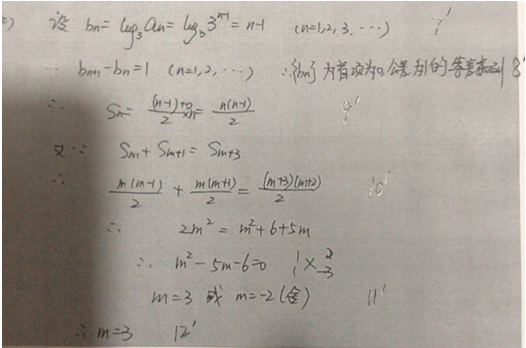 2) 设 bn = log₃ an = log₃ 3ⁿ⁻¹ = n-1 (n=1,2,3,…) 7'
∵ bn+1 - bn = 1 (n=1,2,…) ∴{bn} 为首项为0, 公差为1的等差数列 8'
∴ Sn = (n-1)+0/2 ×n = n(n-1)/2 9'
又∵ Sm + Sm+1 = Sm+3
∴ m(m-1)/2 + m(m+1)/2 = (m+3)(m+2)/2 10'
∴ 2m² = m²+6+5m
∴ m²-5m-6=0 1 1 × 2 -3
m=3 或 m=-2 (舍) 11'
∴ m=3 12'